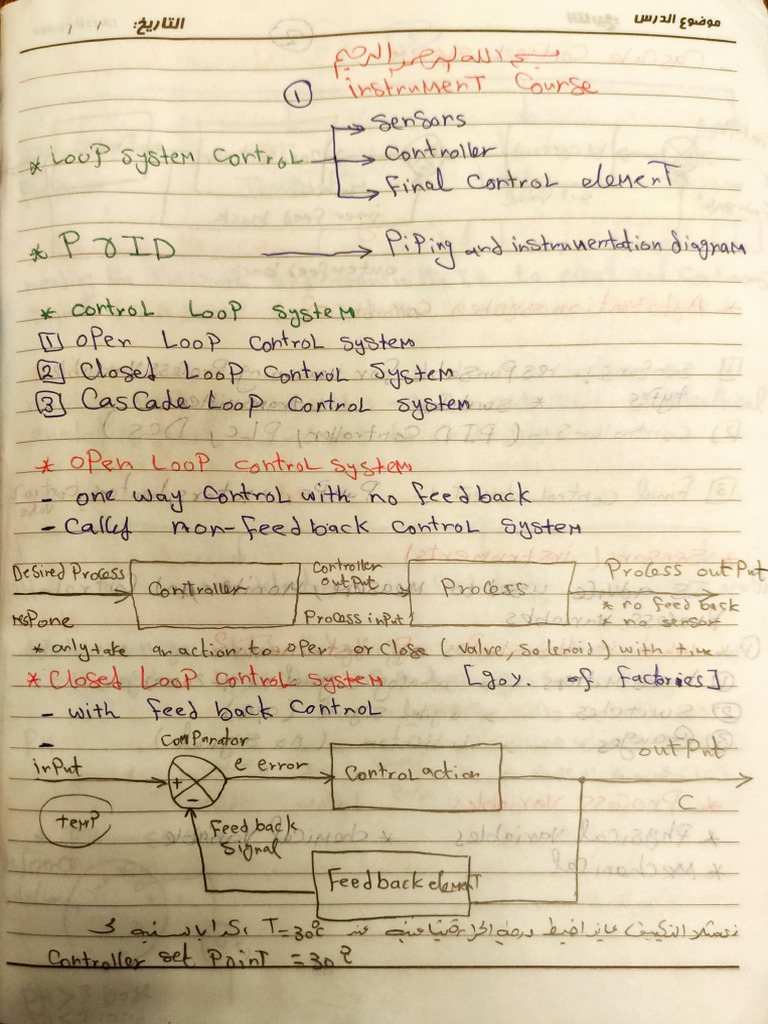 موضوع الدرس
التاريخ: / /
بسم الله الرحمن الرحيم
① instrument Course
* Loop system control
sensors
Controller
Final control element
* P & ID → Piping and instrumentation diagram
* control Loop system
1 open Loop control system
2 Closed Loop control system
3 Cascade Loop control system
* open Loop control system
- one way control with no feedback
- Called non-feedback control system
Desired Process respone
Controller
Controller output
Process input
Process
Process output
* no feed back
* no sensor
* only take an action to open or close (valve, solenoid) with time
* Closed Loop control system [90%. of factories]
- with feed back control
-
input
temp
comparator
+ -
e error
Control action
output
C
Feedback signal
Feedback element
درجة الحرارة عند T=30°c
Controller set Point = 30°c